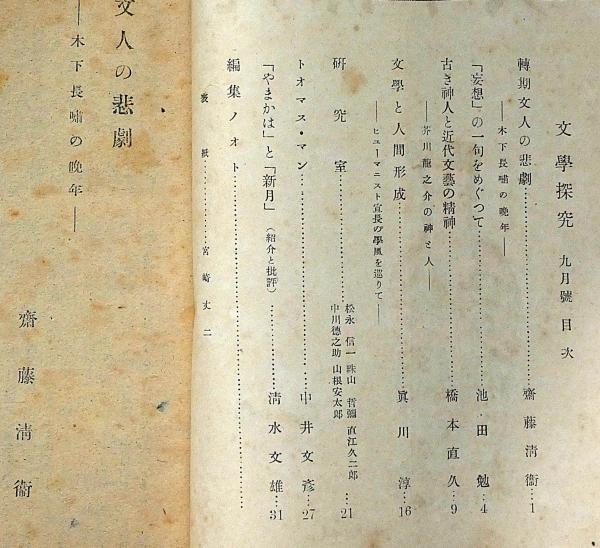 文學探究 九月號 目次
轉期文人の悲劇……………………齋藤淸衞…1
――木下長嘯の晩年――
「妄想」の一句をめぐつて……………………池田勉…4
古き神人と近代文藝の精神……………………橋本直久…9
――芥川龍之介の神と人――
文學と人間形成……………………眞川淳…16
――ヒューマニスト宣長の學風を巡りて――
硏究室……………………松永信一 味山哲彌 直江久二郎
中川德之助 山根安太郎…21
トオマス・マン……………………中井文彦…27
「やまかは」と「新月」(紹介と批評)…………淸水文雄…31
編集ノオト……………………
表紙…………宮崎丈二
文人の悲劇
――木下長嘯の晩年――
齋藤淸衞